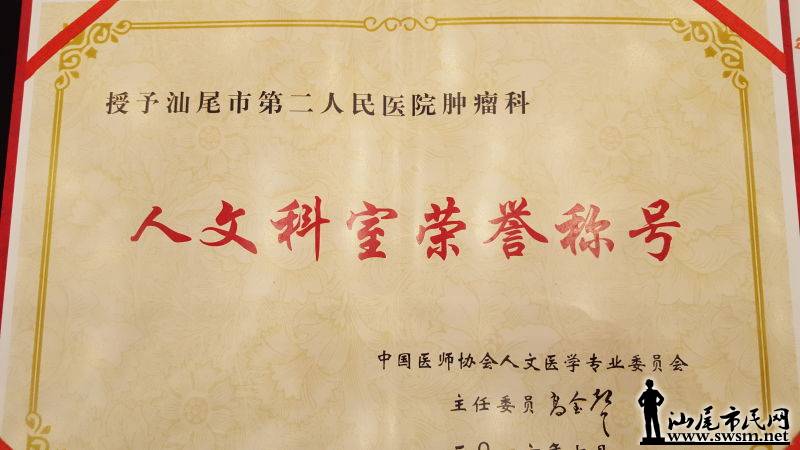 授予汕尾市第二人民医院肿瘤科
人文科室荣誉称号
中国医师协会人文医学专业委员会
主任委员
汕尾市民网
www.swsm.net